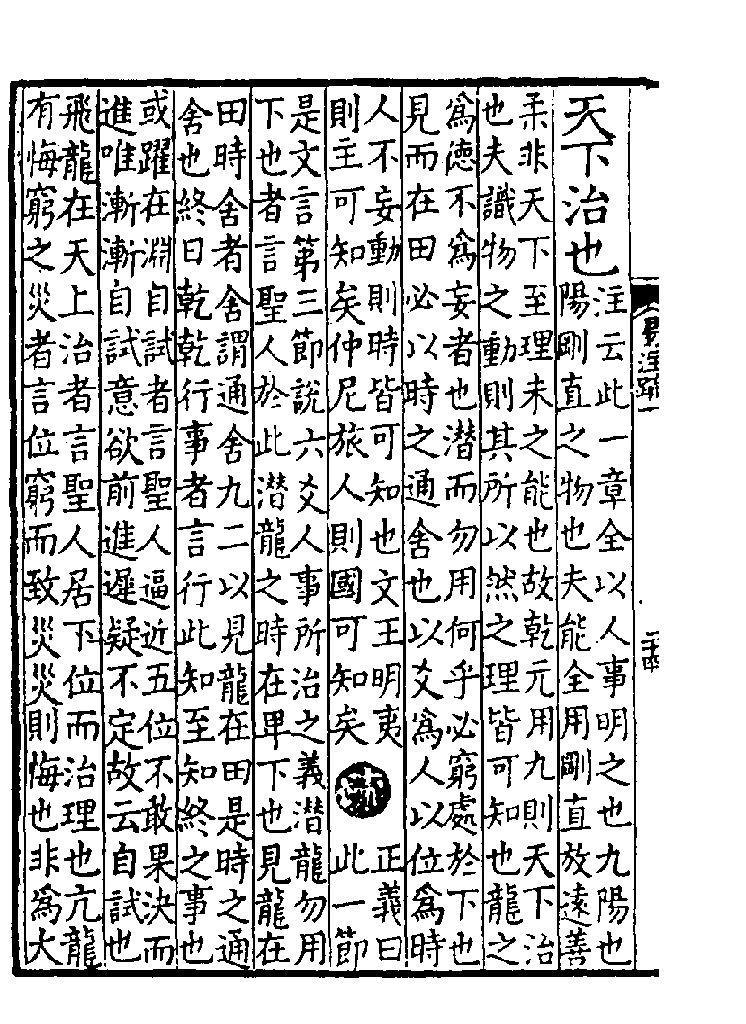 天下治也
注云此一章全以人事明之也九陽也
陽剛直之物也夫能全用剛直放遠善
柔非天下至理未之能也故乾元用九則天下治
也夫識物之動則其所以然之理皆可知也龍之
爲徳不爲妄者也潛而勿用何乎必窮處於下也
見而在田必以時之通舍也以爻爲人以位爲時
人不妄動則時皆可知也文王明夷
則主可知矣仲尼旅人則國可知矣
疏
正義曰
此一節
是文言第三節說六爻人事所治之義潛龍勿用
下也者言聖人於此潛龍之時在卑下也見龍在
田時舍者舍謂通舍九二以見龍在田是時之通
舍也終日乾乾行事者言行此知至知終之事也
或躍在淵自試者言聖人逼近五位不敢果決而
進唯漸漸自試意欲前進遲疑不定故云自試也
飛龍在天上治者言聖人居下位而治理也亢龍
有悔窮之災者言位窮而致災災則悔也非爲大